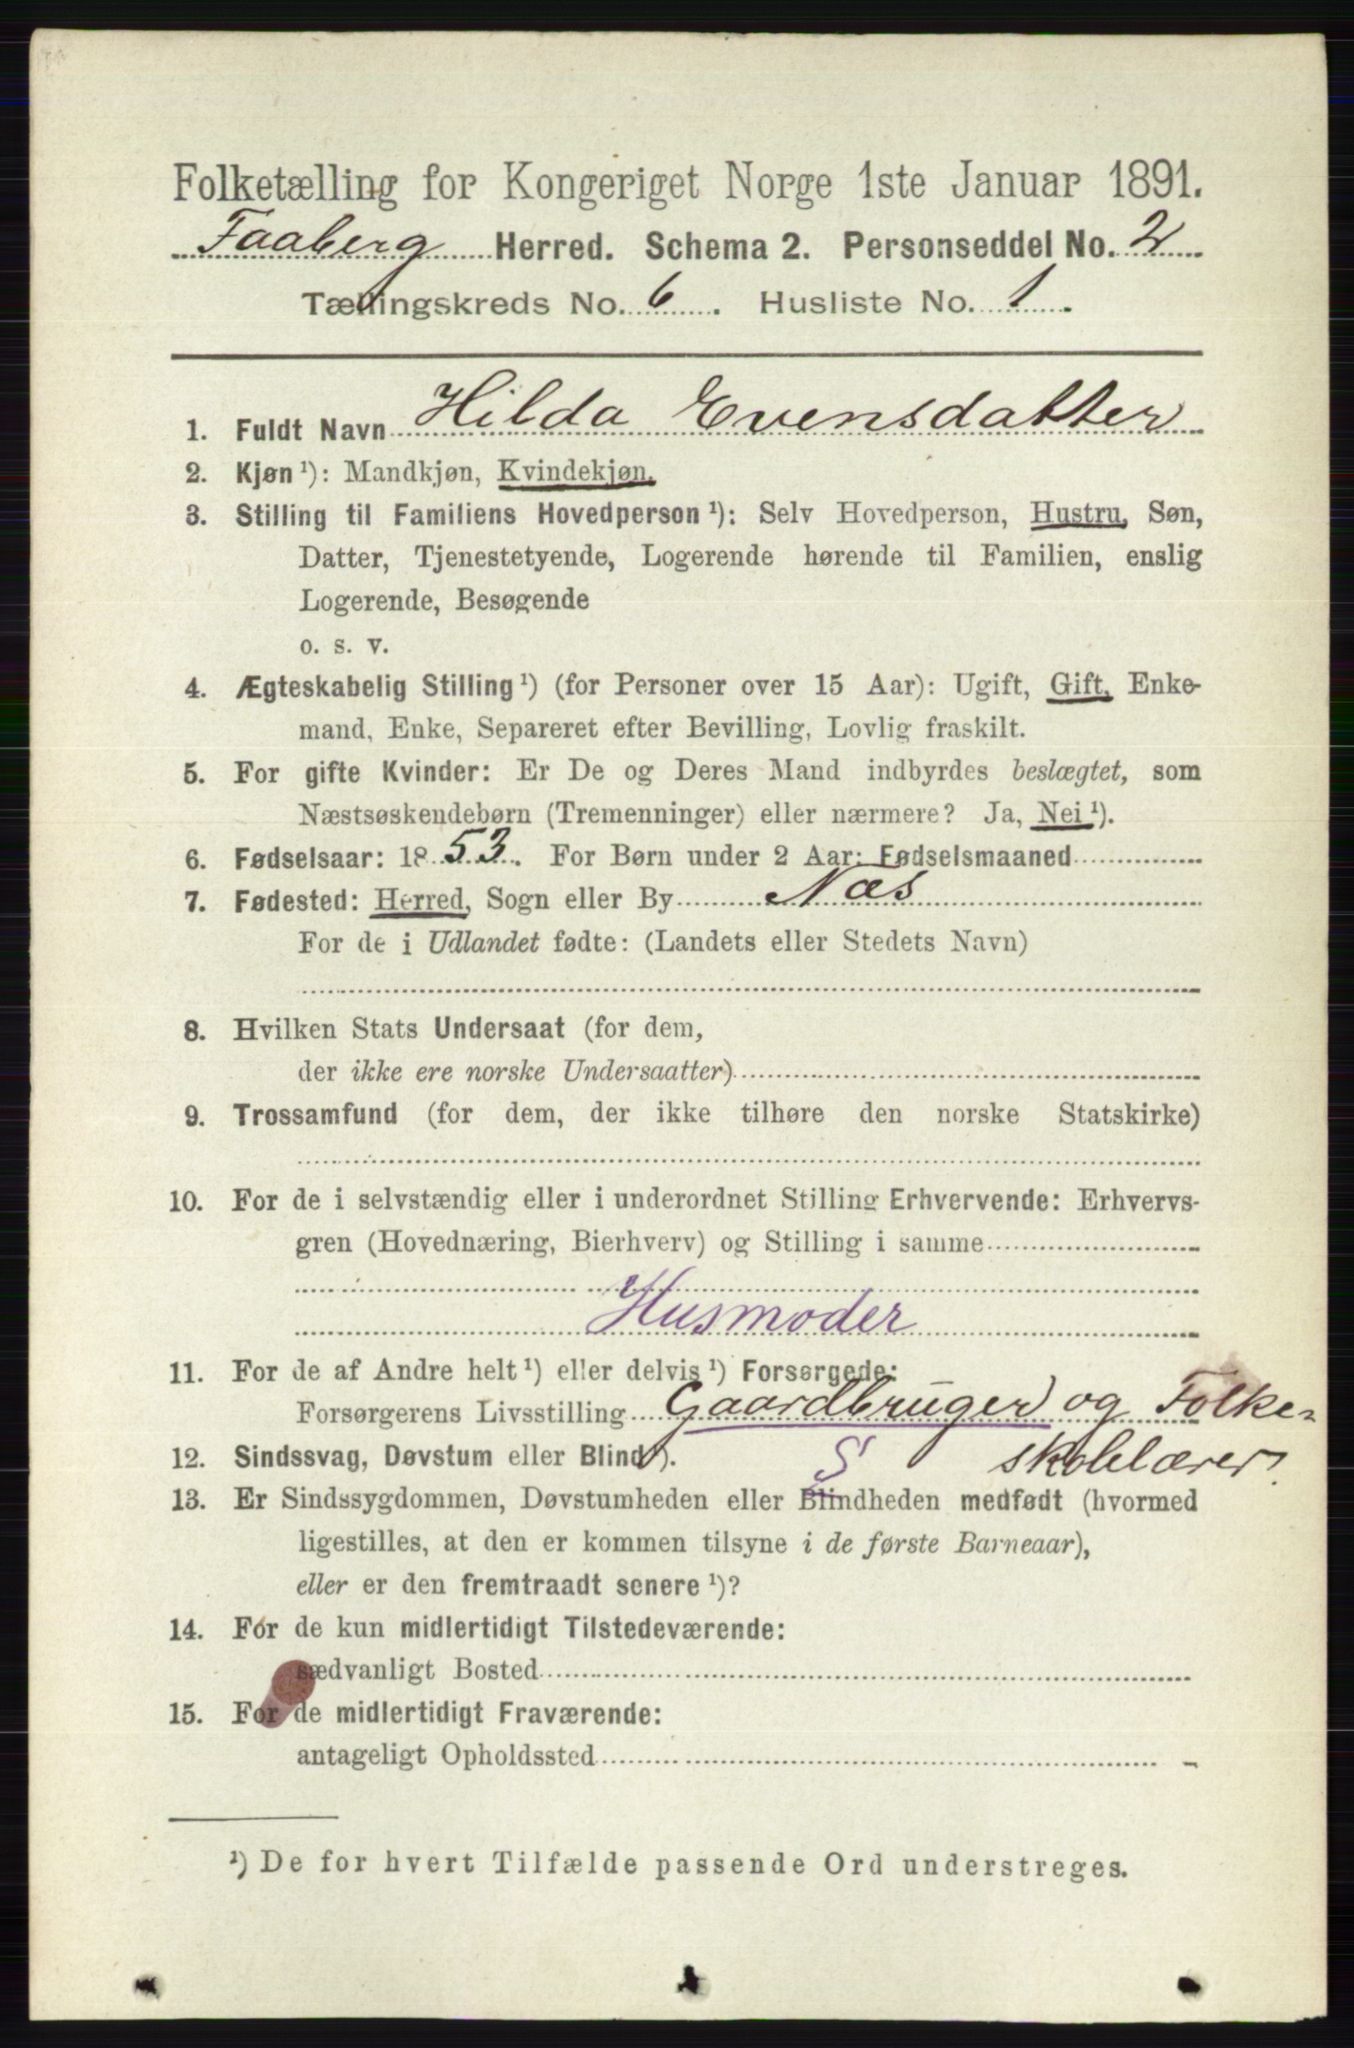 Folketælling for Kongeriget Norge 1ste Januar 1891.
Faaberg Herred. Schema 2. Personseddel No. 2
Tællingskreds No. 6. Husliste No. 1.
1. Fuldt Navn Hilda Evensdatter
2. Kjøn ¹): Mandkjøn, Kvindekjøn.
3. Stilling til Familiens Hovedperson ¹): Selv Hovedperson, Hustru, Søn,
Datter, Tjenestetyende, Logerende hørende til Familien, enslig
Logerende, Besøgende
o. s. v.
4. Ægteskabelig Stilling ¹) (for Personer over 15 Aar): Ugift, Gift, Enke-
mand, Enke, Separeret efter Bevilling, Lovlig fraskilt.
5. For gifte Kvinder: Er De og Deres Mand indbyrdes beslægtet, som
Næstsøskendebørn (Tremenninger) eller nærmere? Ja, Nei ¹).
6. Fødselsaar: 1853. For Børn under 2 Aar: Fødselsmaaned
7. Fødested: Herred, Sogn eller By Næs
For de i Udlandet fødte: (Landets eller Stedets Navn)
8. Hvilken Stats Undersaat (for dem,
der ikke ere norske Undersaatter)
9. Trossamfund (for dem, der ikke tilhøre den norske Statskirke)
10. For de i selvstændig eller i underordnet Stilling Erhvervende: Erhvervs-
gren (Hovednæring, Bierhverv) og Stilling i samme
Husmoder
11. For de af Andre helt ¹) eller delvis ¹) Forsørgede:
Forsørgerens Livsstilling Gaardbruger og Folke-
12. Sindssvag, Døvstum eller Blind ¹). S skolelærer.
13. Er Sindssygdommen, Døvstumheden eller Blindheden medfødt (hvormed
ligestilles, at den er kommen tilsyne i de første Barneaar),
eller er den fremtraadt senere ¹)?
14. For de kun midlertidigt Tilstedeværende:
sædvanligt Bosted
15. For de midlertidigt Fraværende:
antageligt Opholdssted
¹) De for hvert Tilfælde passende Ord understreges.